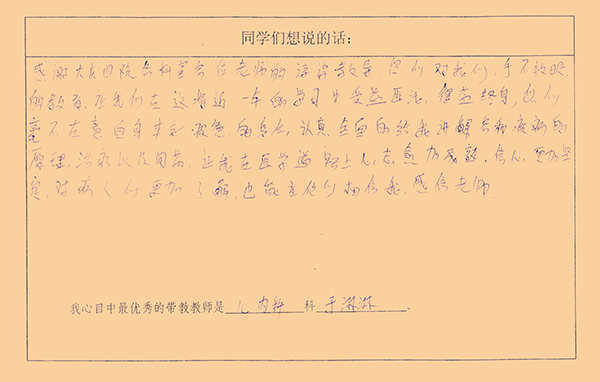 同学们想说的话:
感谢大庆四院各科室各位老师的谆谆教导,你们对我们,手不放眼
的教育,让我们在这将近一年的学习中受益匪浅,得益终身,你们
毫不在意自身来和疲惫的身心,认真全面的给我讲解各种疾病的
原理,治疗以及用药,让我在医学道路上人,志愈加成熟,信心,更加坚
定,对病人们更加了解,也能去他们相信我,感信老师
我心目中最优秀的带教教师是 儿内科 科 于淋淋 。